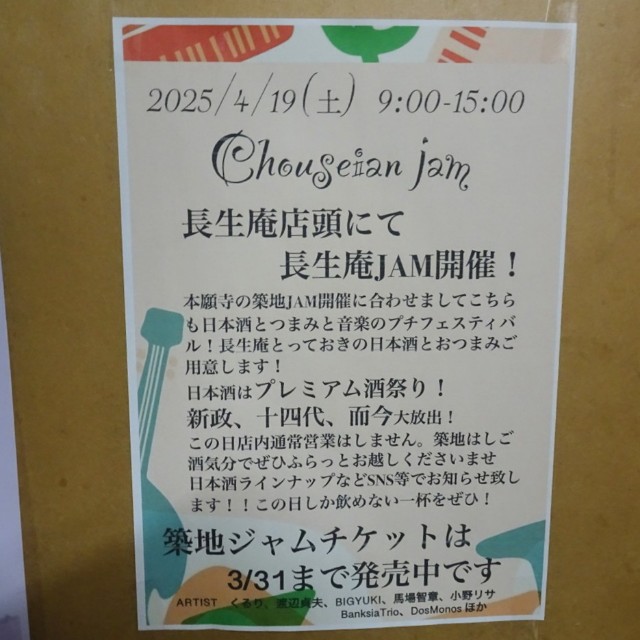 2025/4/19(土) 9:00-15:00
Chouseian jam
長生庵店頭にて
長生庵JAM開催！
本願寺の築地JAM開催に合わせましてこちら
も日本酒とつまみと音楽のプチフェスティバ
ル！長生庵とっておきの日本酒とおつまみご
用意します！
日本酒はプレミアム酒祭り！
新政、十四代、而今大放出！
この日店内通常営業はしません。築地はしご
酒気分でぜひふらっとお越しくださいませ
日本酒ラインナップなどSNS等でお知らせ致し
ます！！この日しか飲めない一杯をぜひ！
築地ジャムチケットは
3/31まで発売中です
ARTIST くるり、渡辺貞夫、BIGYUKI、馬場智章、小野リサ
BanksiaTrio、DosMonos ほか